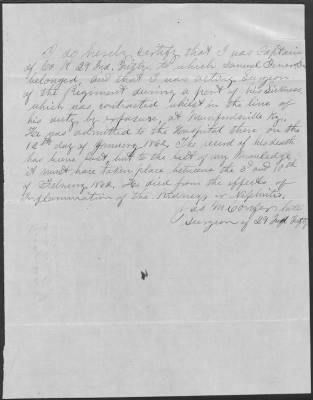 I do hereby certify that I was Captain
of Co. K 29 Ind. Regt. to which Samuel
belonged, and that I was acting Surgeon
of the Regiment during a part of his Sickness
which was contracted whilst in the line of
his duty by exposure, at Munfordsville Ky.
He was admitted to the Hospital there on the
12th day of January 1862, The record of his death
has been lost, but to the best of my knowledge
it must have taken place between the 3d and 10th
of February 1862, He died from the effects of
Inflammation of the Kidneys or Nephritis,
late
Surgeon of 29 Regt